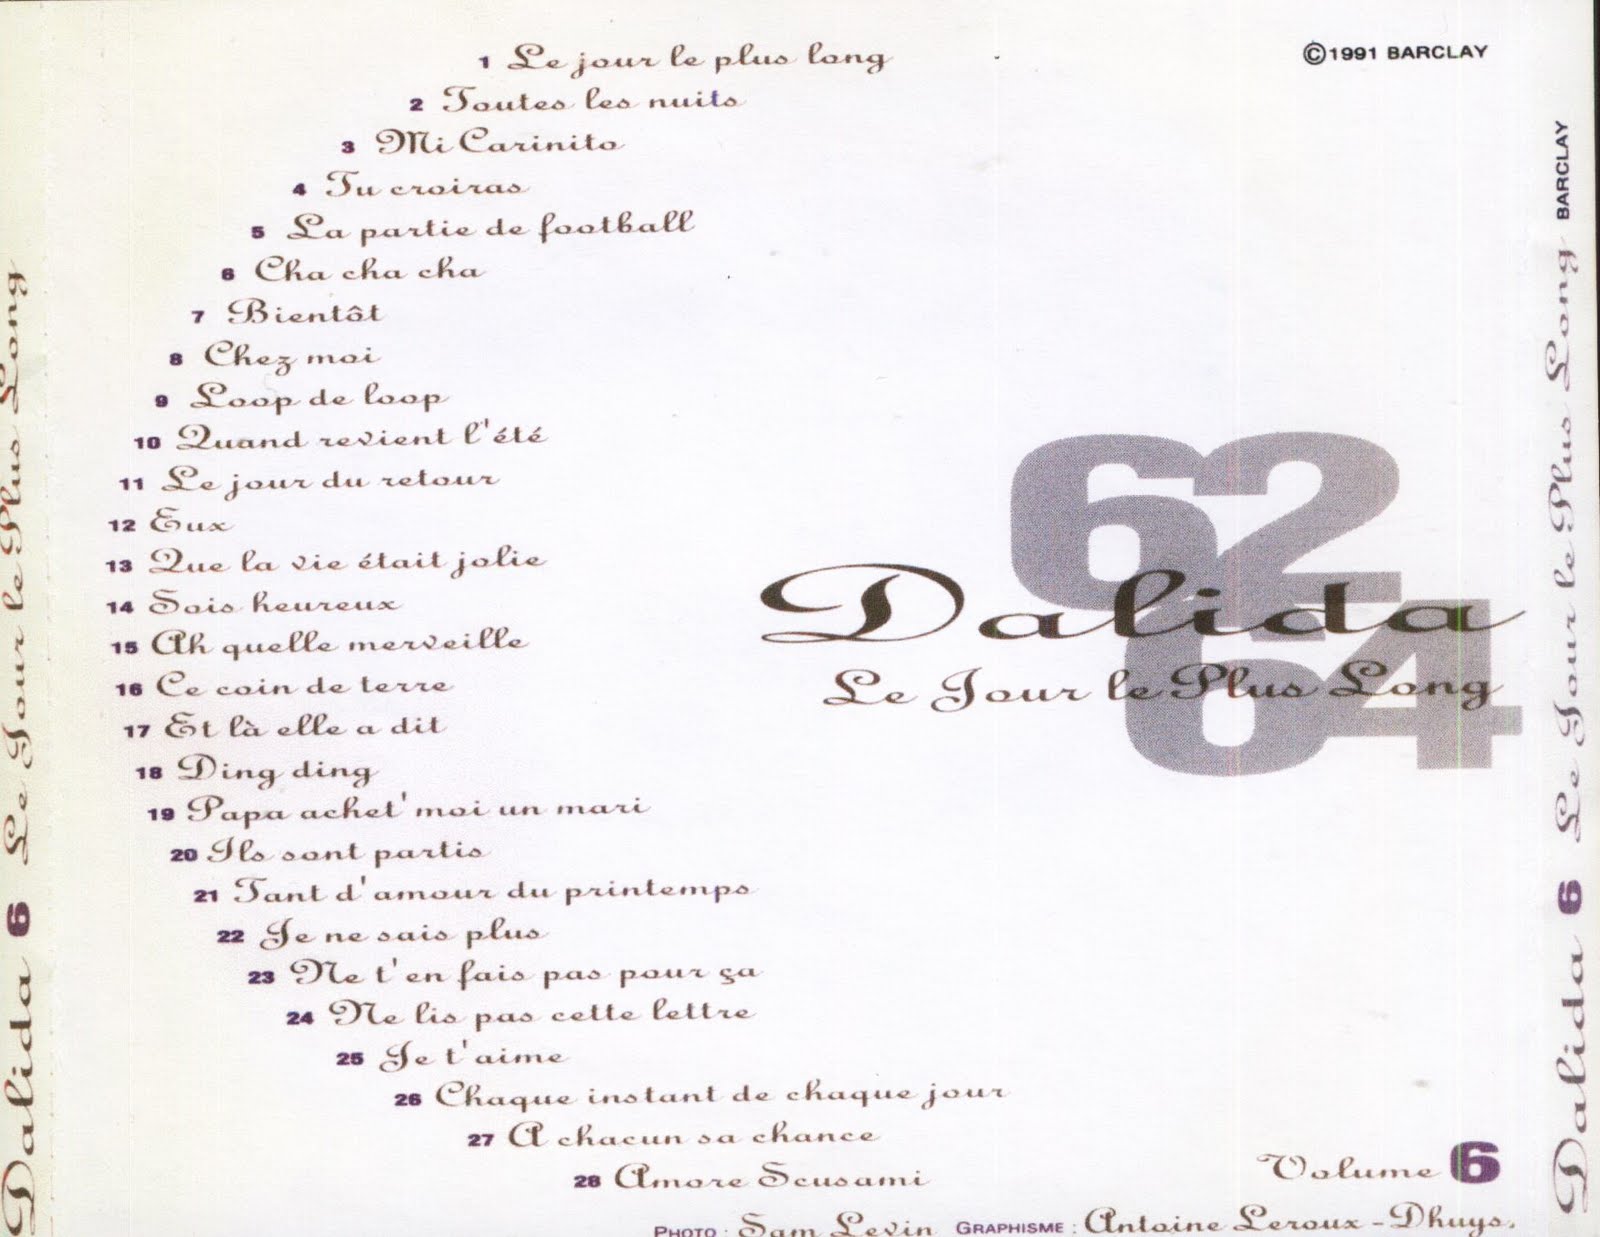 1 Le jour le plus long
2 Toutes les nuits
3 Mi Carinito
4 Tu croiras
5 La partie de football
6 Cha cha cha
7 Bientôt
8 Chez moi
9 Loop de loop
10 Quand revient l'été
11 Le jour du retour
12 Eux
13 Que la vie était jolie
14 Sois heureux
15 Ah quelle merveille
16 Ce coin de terre
17 Et là elle a dit
18 Ding ding
19 Papa achet' moi un mari
20 Ils sont partis
21 Tant d'amour du printemps
22 Je ne sais plus
23 Ne t'en fais pas pour ça
24 Ne lis pas cette lettre
25 Je t'aime
26 Chaque instant de chaque jour
27 A chacun sa chance
28 Amore Scusami
©1991 BARCLAY
62
64
Dalida
Le Jour le Plus Long
Volume 6
PHOTO : Sam Levin GRAPHISME : Antoine Leroux-Dhuys.
Dalida 6 Le Jour le Plus Long
Dalida 6 Le Jour le Plus Long BARCLAY